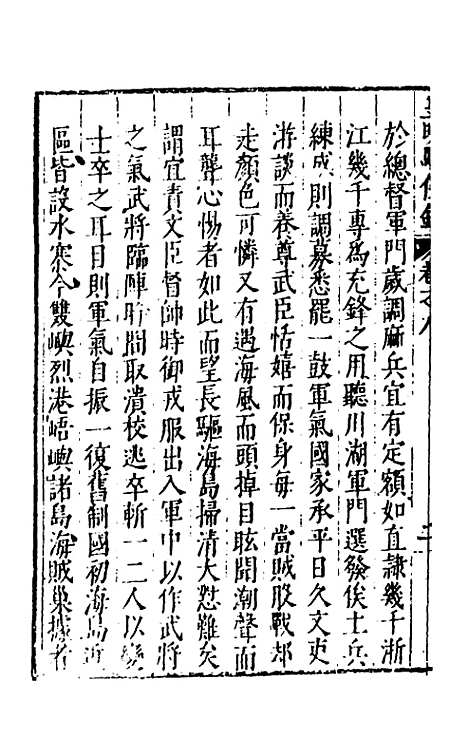 卷之八
於總督軍門歲調麻兵宜有定額如直隸幾千浙
江幾千專為充鋒之用聽川湖軍門選發俟土兵
練成則調募悉罷一鼓軍氣國家承平日久文吏
游談而養尊武臣恬嬉而保身每一當賊股戰却
走顏色可憐又有遇海風而頭掉目眩聞潮聲而
耳聾心惕者如此而望長驅海島掃清大憝難矣
謂宜責文臣督帥時御戎服出入軍中以作武將
之氣武將臨陣時間取潰校逃卒斬一二人以變
士卒之耳目則軍氣自振一復舊制國初海島近
區皆設水寨今雙嶼烈港峿嶼諸島海賊巢據者